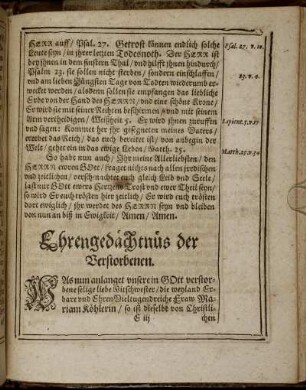 HErr auff / Psal. 27. Getrost können endlich solche
Leute seyn / in ihrer letzten Todesnoth. Der HErr ist
bey ihnen in dem finstern Thal / und hilfft ihnen hindurch /
Psalm 23. sie sollen nicht sterben / sondern einschlaffen /
und am lieben Jüngsten Tage von Todten wiederumb er-
wecket werden / alsdenn sollen sie empfangen das liebliche
Erbe von der Hand des HErrn / und eine schöne Krone /
Er wird sie mit seiner Rechten beschirmen / und mit seinem
Arm vertheidigen / Weißheit 5. Er wird ihnen zuruffen
und sagen: Kommet her ihr gesegneten meines Vaters /
ererbet das Reich / das euch bereitet ist / von anbegin der
Welt / gehet ein in das ewige Leben / Matth. 25.
So habt nun auch / Ihr meine Allerliebsten / den
HErrn ewren GOtt / fraget nichts nach allen irrdischen
und zeitlichen / verschmachtet euch gleich Leib und Seele /
last nur GOtt ewers Hertzens Trost und ewer Theil seyn /
so wird Er euch trösten hier zeitlich / Er wird euch trösten
dort ewiglich / ihr werdet des HErrn seyn und bleiben
von nun an biß in Ewigkeit / Amen / Amen.
Psal. 27. v. 10.
23. v. 4.
Sapient. 5. v. 17
Matth. 25. v. 34
Ehrengedächtnüs der
Verstorbenen.
WAs nun anlanget unsere in GOtt verstor-
bene selige liebe Mitschwester / die weyland Er-
bare und EhrenVieltugendreiche Fraw Ma-
riam Köhlerin / so ist dieselbe von Christli-
E iij
chen